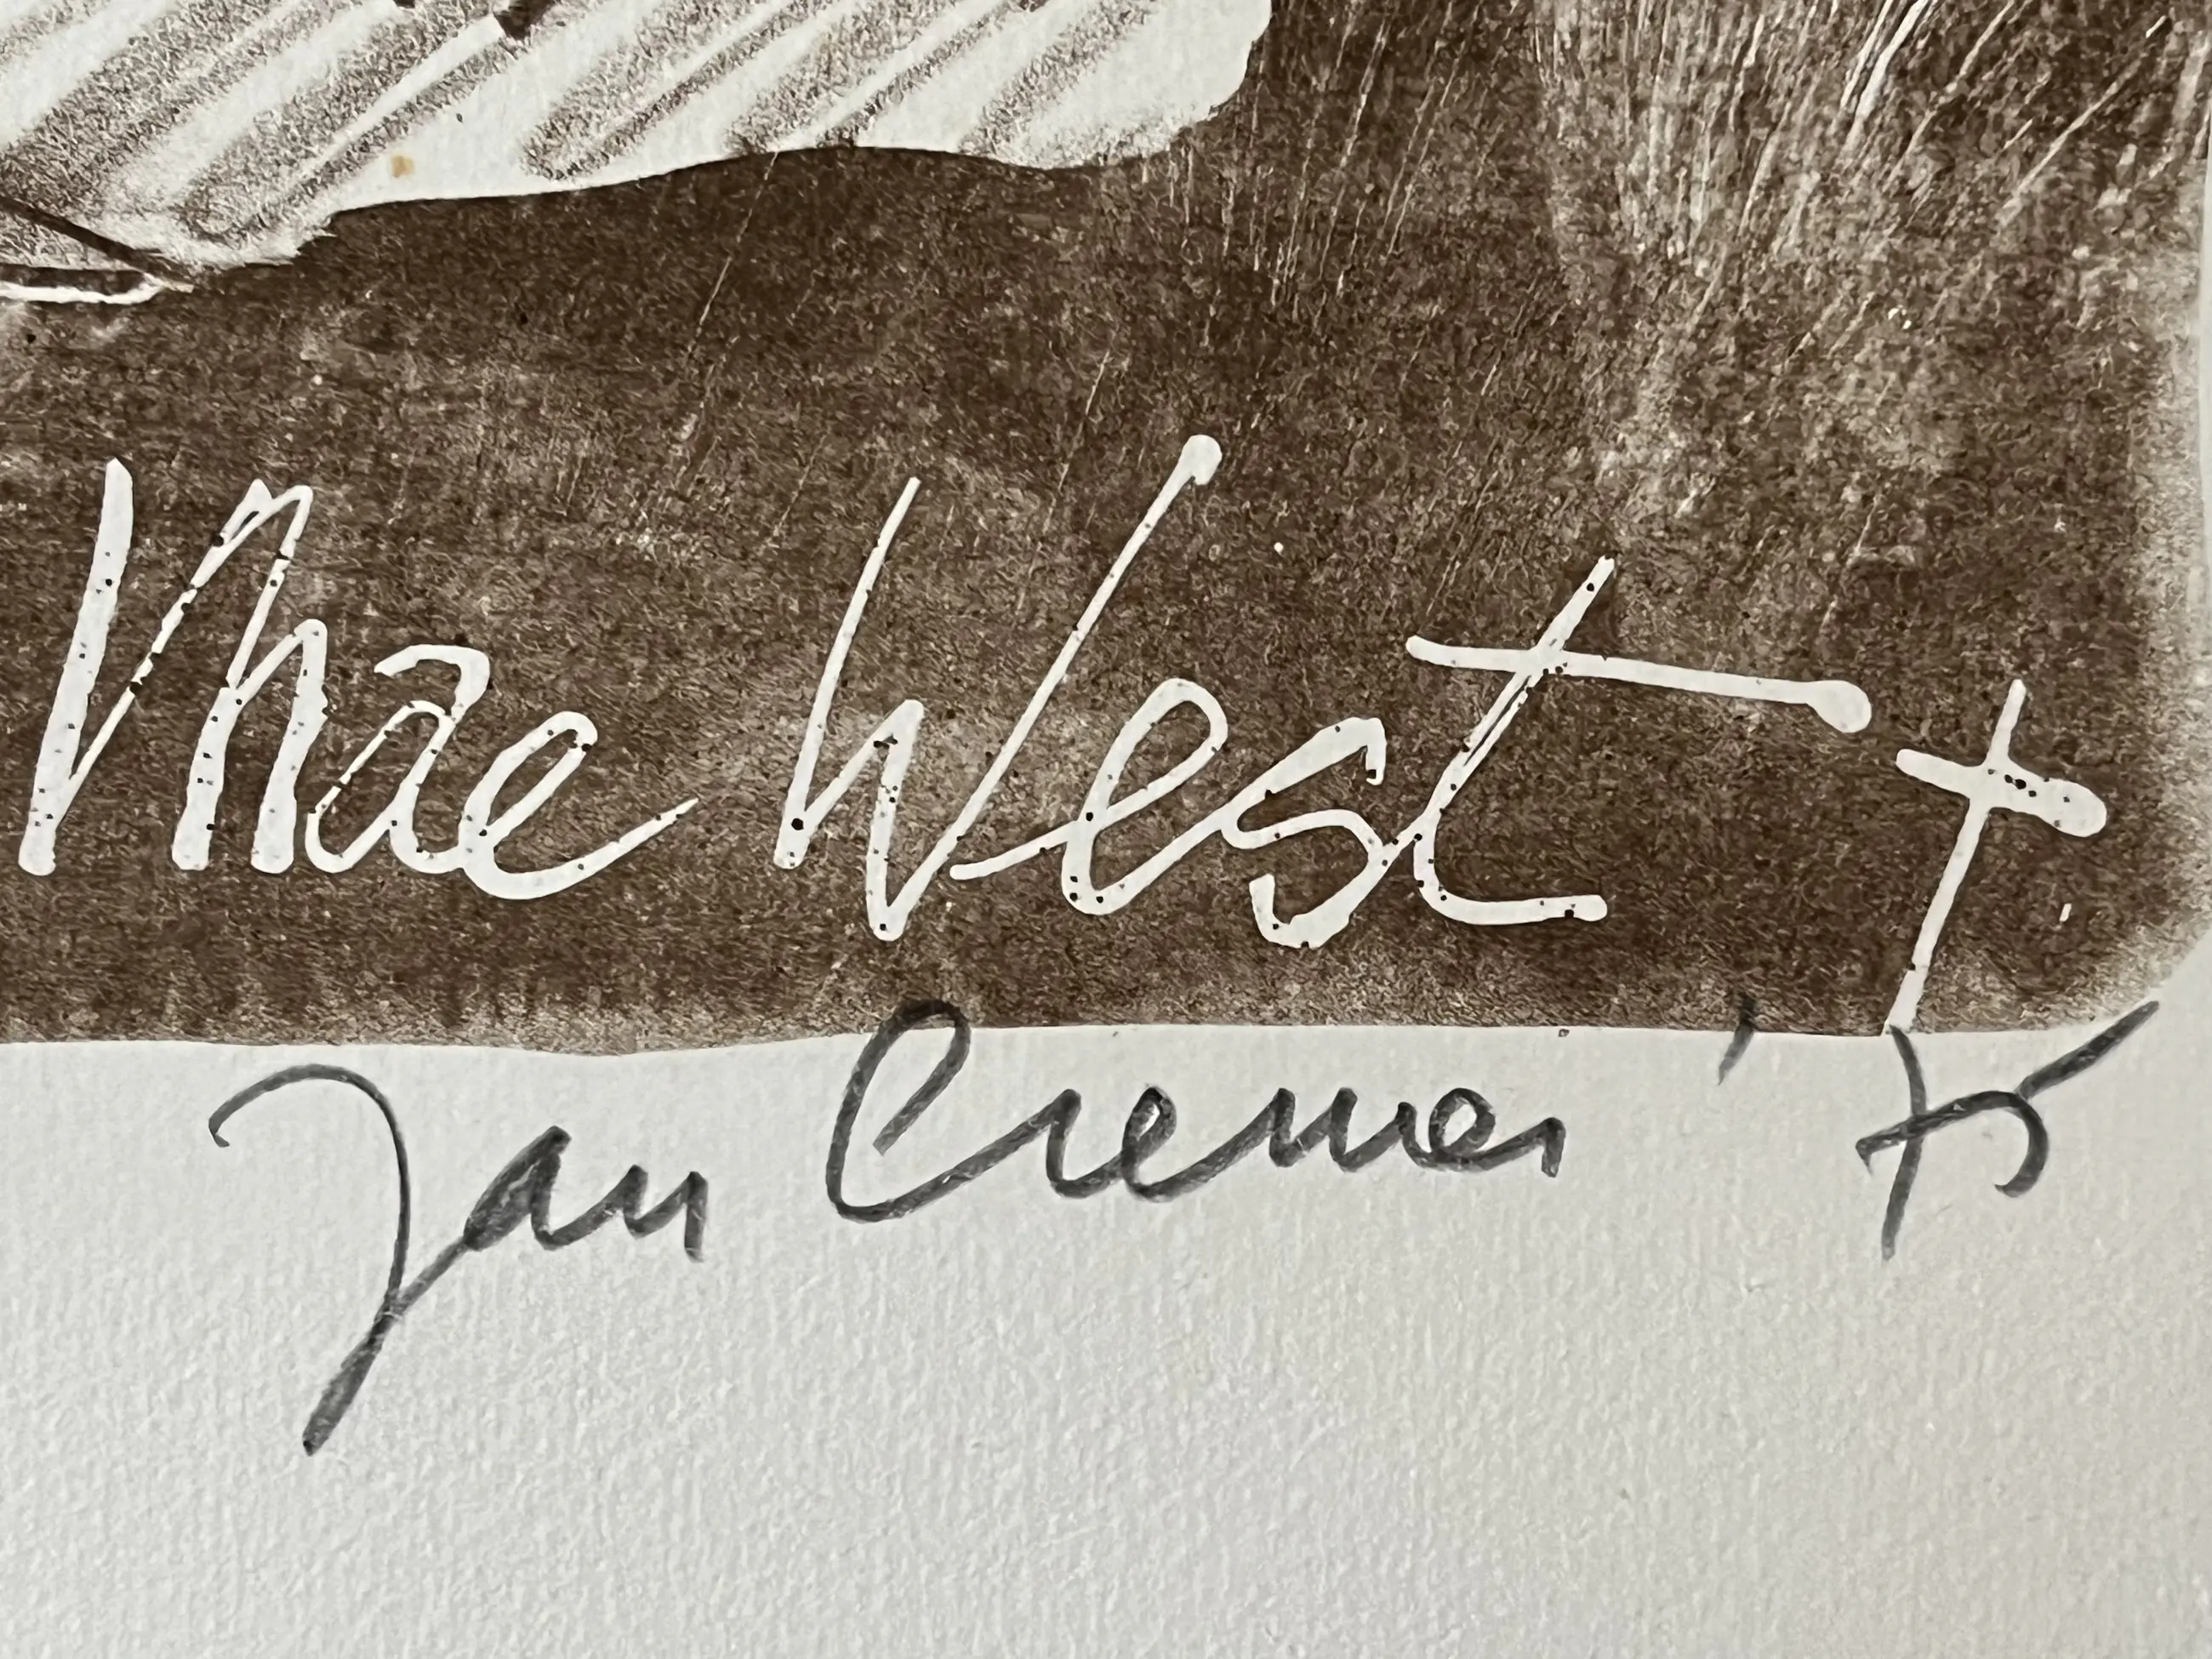 Mae West †
Jan Cremer '75